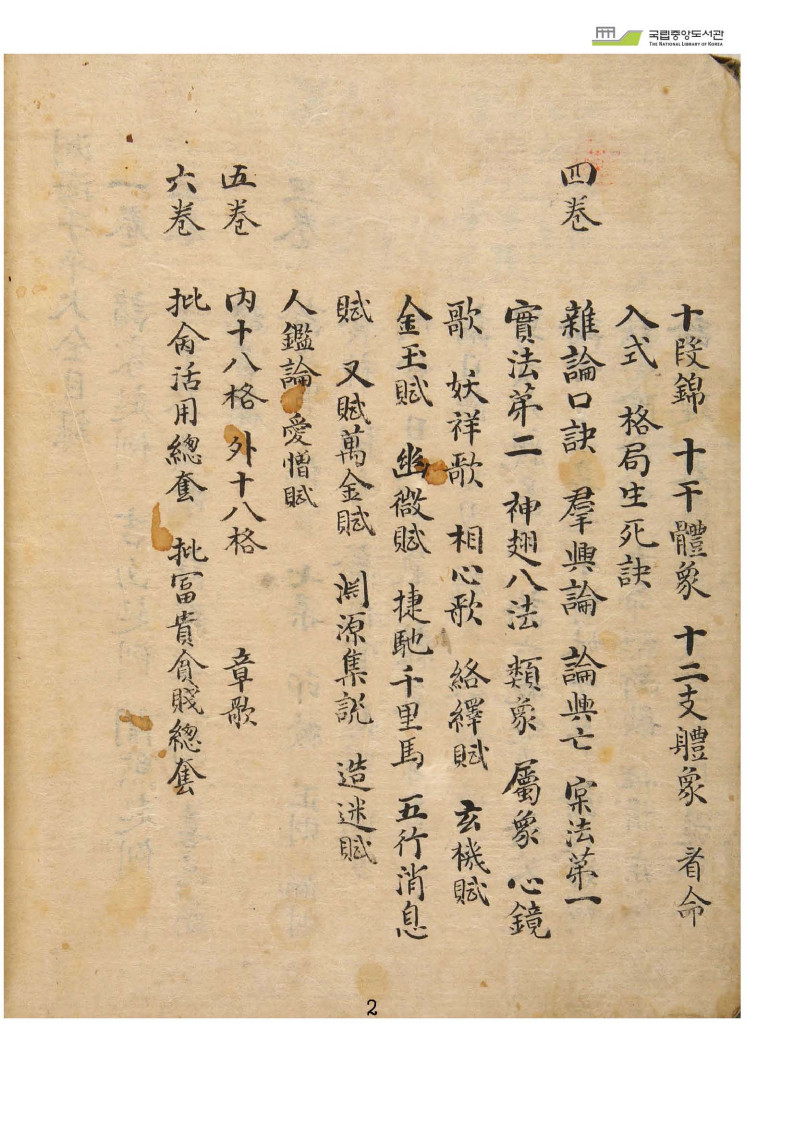 국립중앙도서관
THE NATIONAL LIBRARY OF KOREA
十段錦 十干體象 十二支體象 看命
入式 格局生死訣
四卷 雜論口訣 羣興論 論興亡 寀法第一
實法第二 神趐八法 類象 屬象 心鏡
歌 妖祥歌 相心歌 絡繹賦 玄機賦
金玉賦 幽微賦 捷馳千里馬 五行消息
賦 又賦萬金賦 淵源集説 造迷賦
人鑑論 愛憎賦
五卷 内十八格 外十八格 章歌
六卷 批命活用總套 批冨貴貧賤總套
2